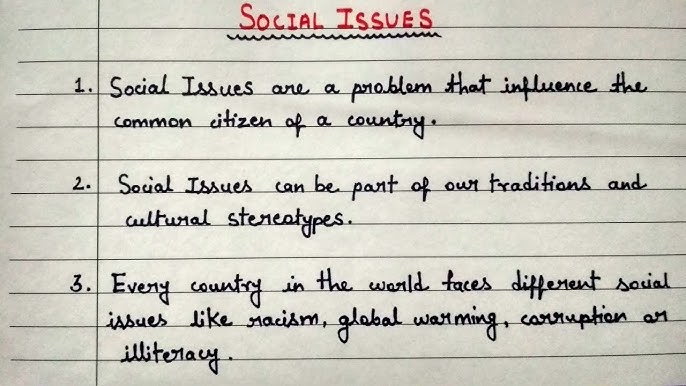 SOCIAL ISSUES
1. Social Issues are a problem that influence the
common citizen of a country.
2. Social Issues can be part of our traditions and
cultural stereotypes.
3. Every country in the world faces different social
issues like racism, global warming, corruption or
illiteracy.